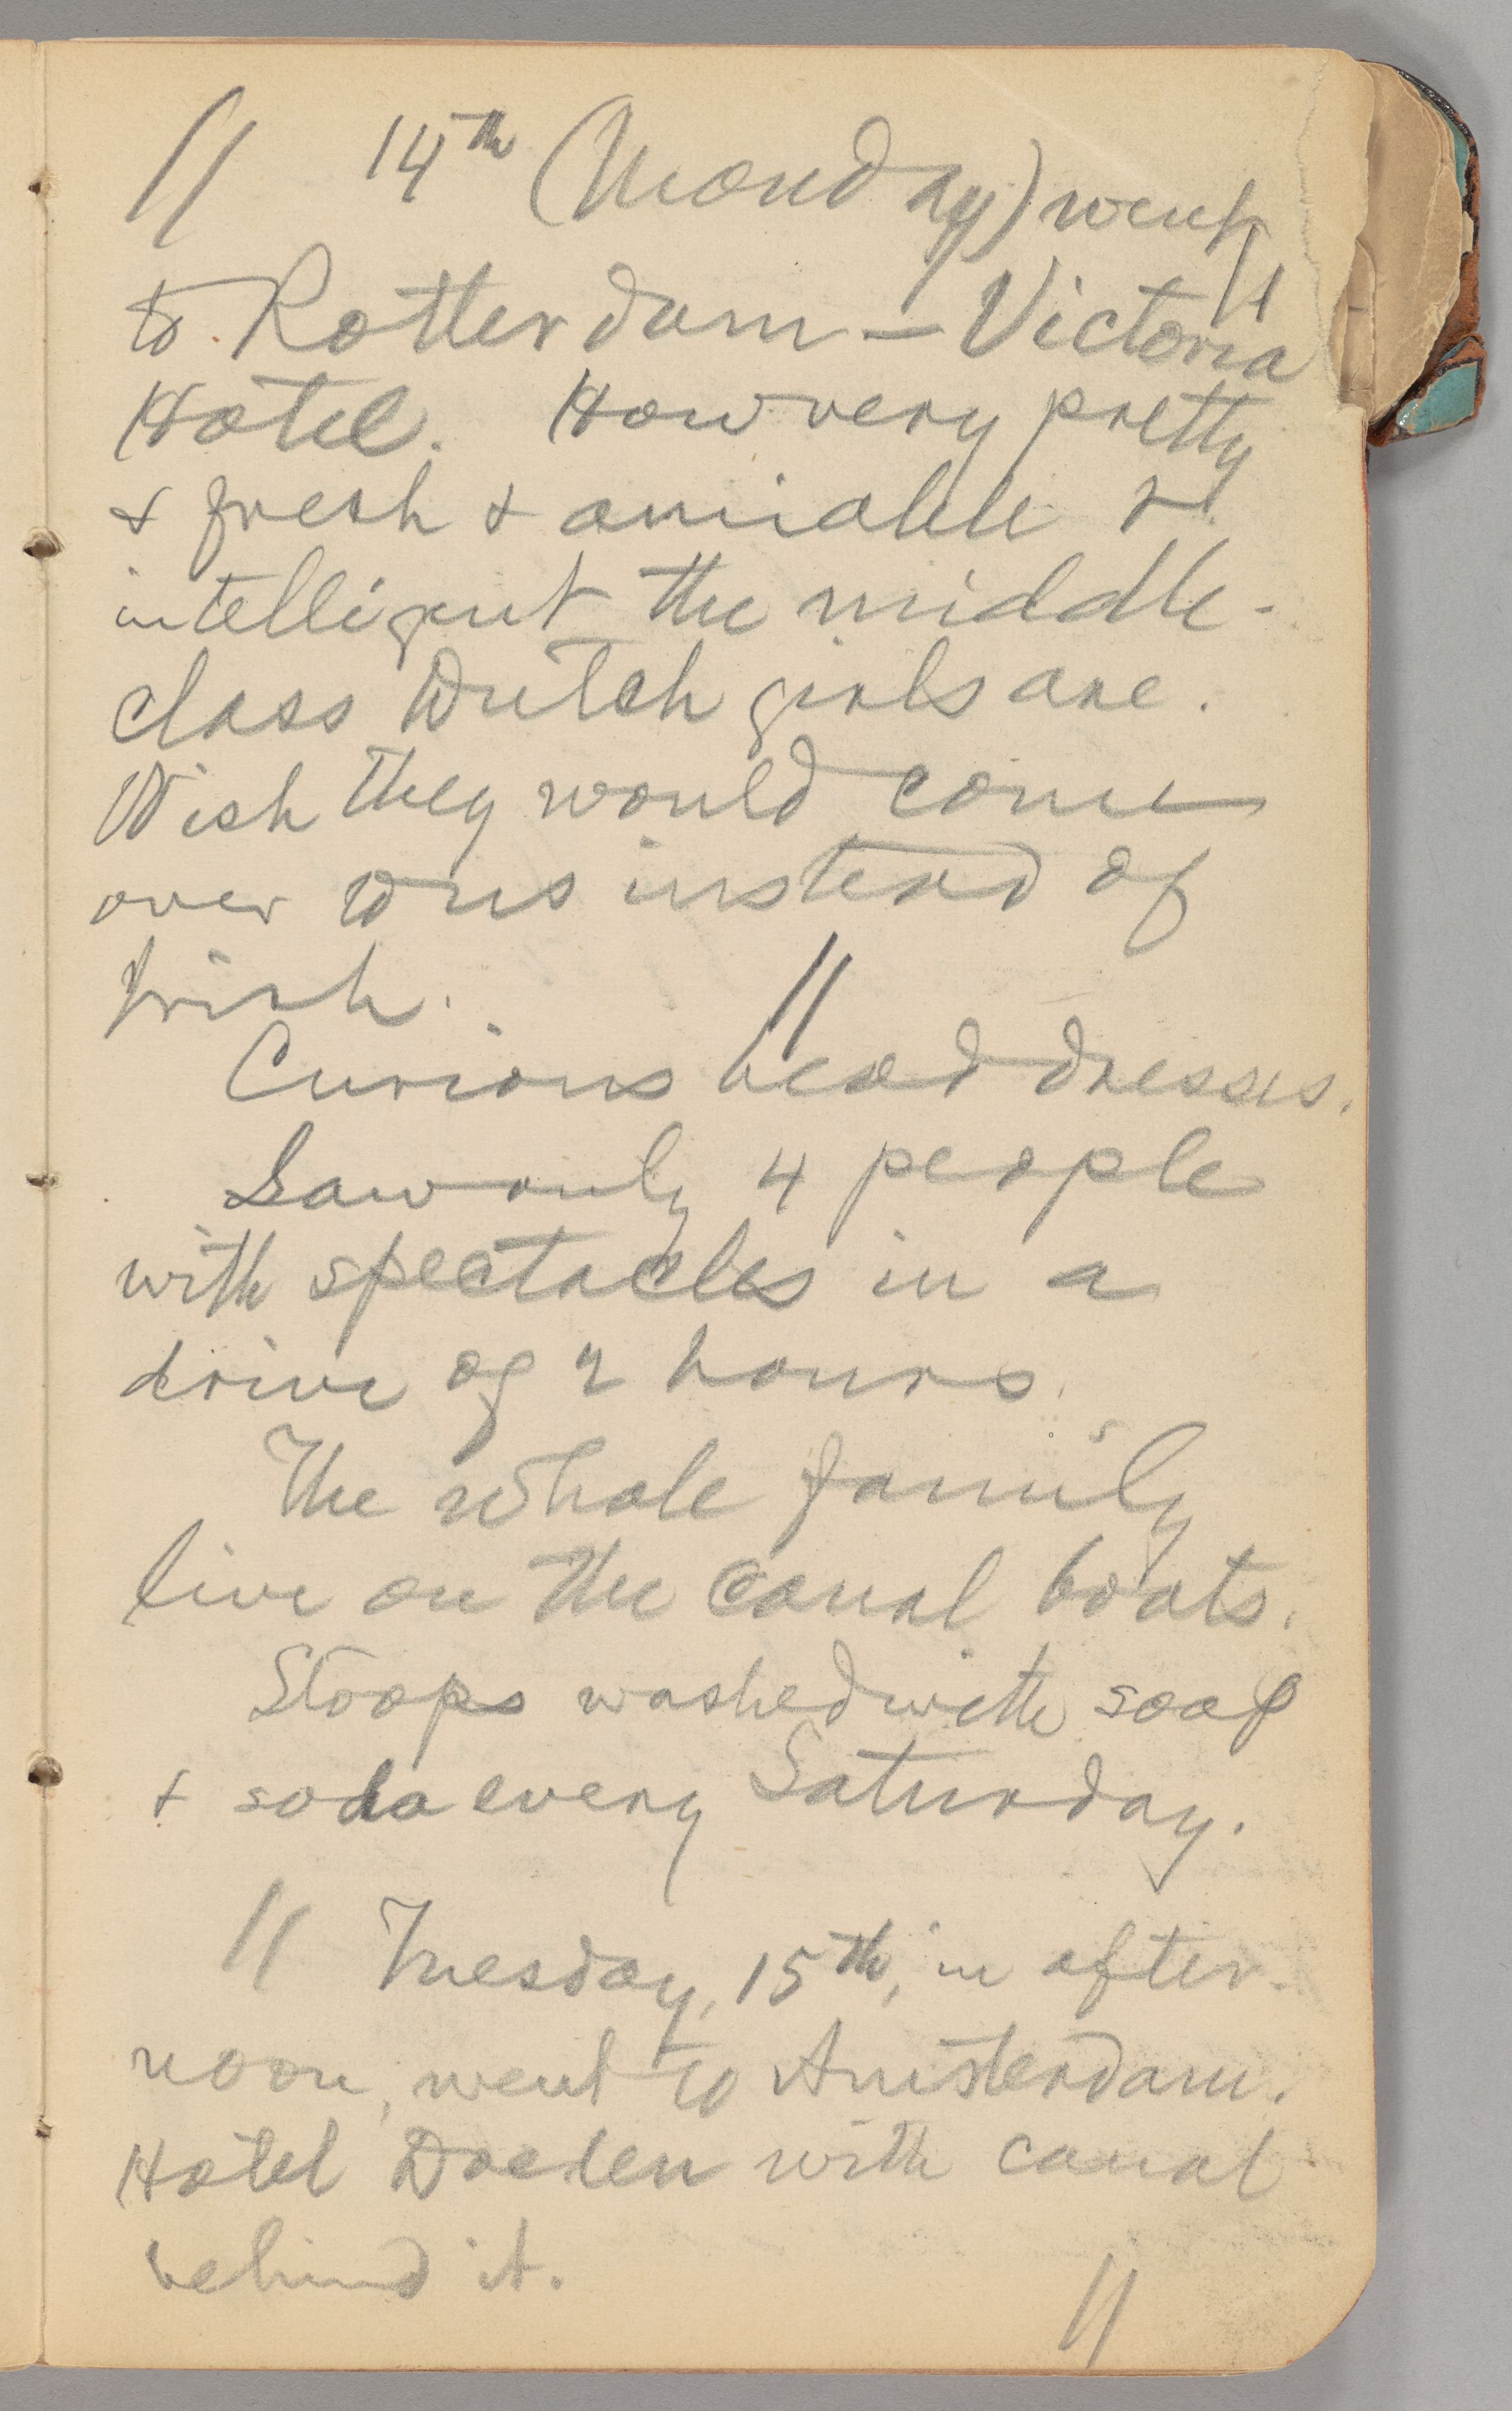 // 14th (Monday) went //
to Rotterdam — Victoria
Hotel. How very pretty
& fresh & amiable &
intelligent the middle-
class Dutch girls are.
Wish they would come
over to us instead of
Irish. //
Curious head dresses.
Saw only 4 people
with spectacles in a
drive of 2 hours.
The whole family
live on the canal boats.
Stoops washed with soap
& soda every Saturday.
// Tuesday, 15th, in after-
noon, went to Amsterdam.
Hotel Doelen with canal
behind it. //